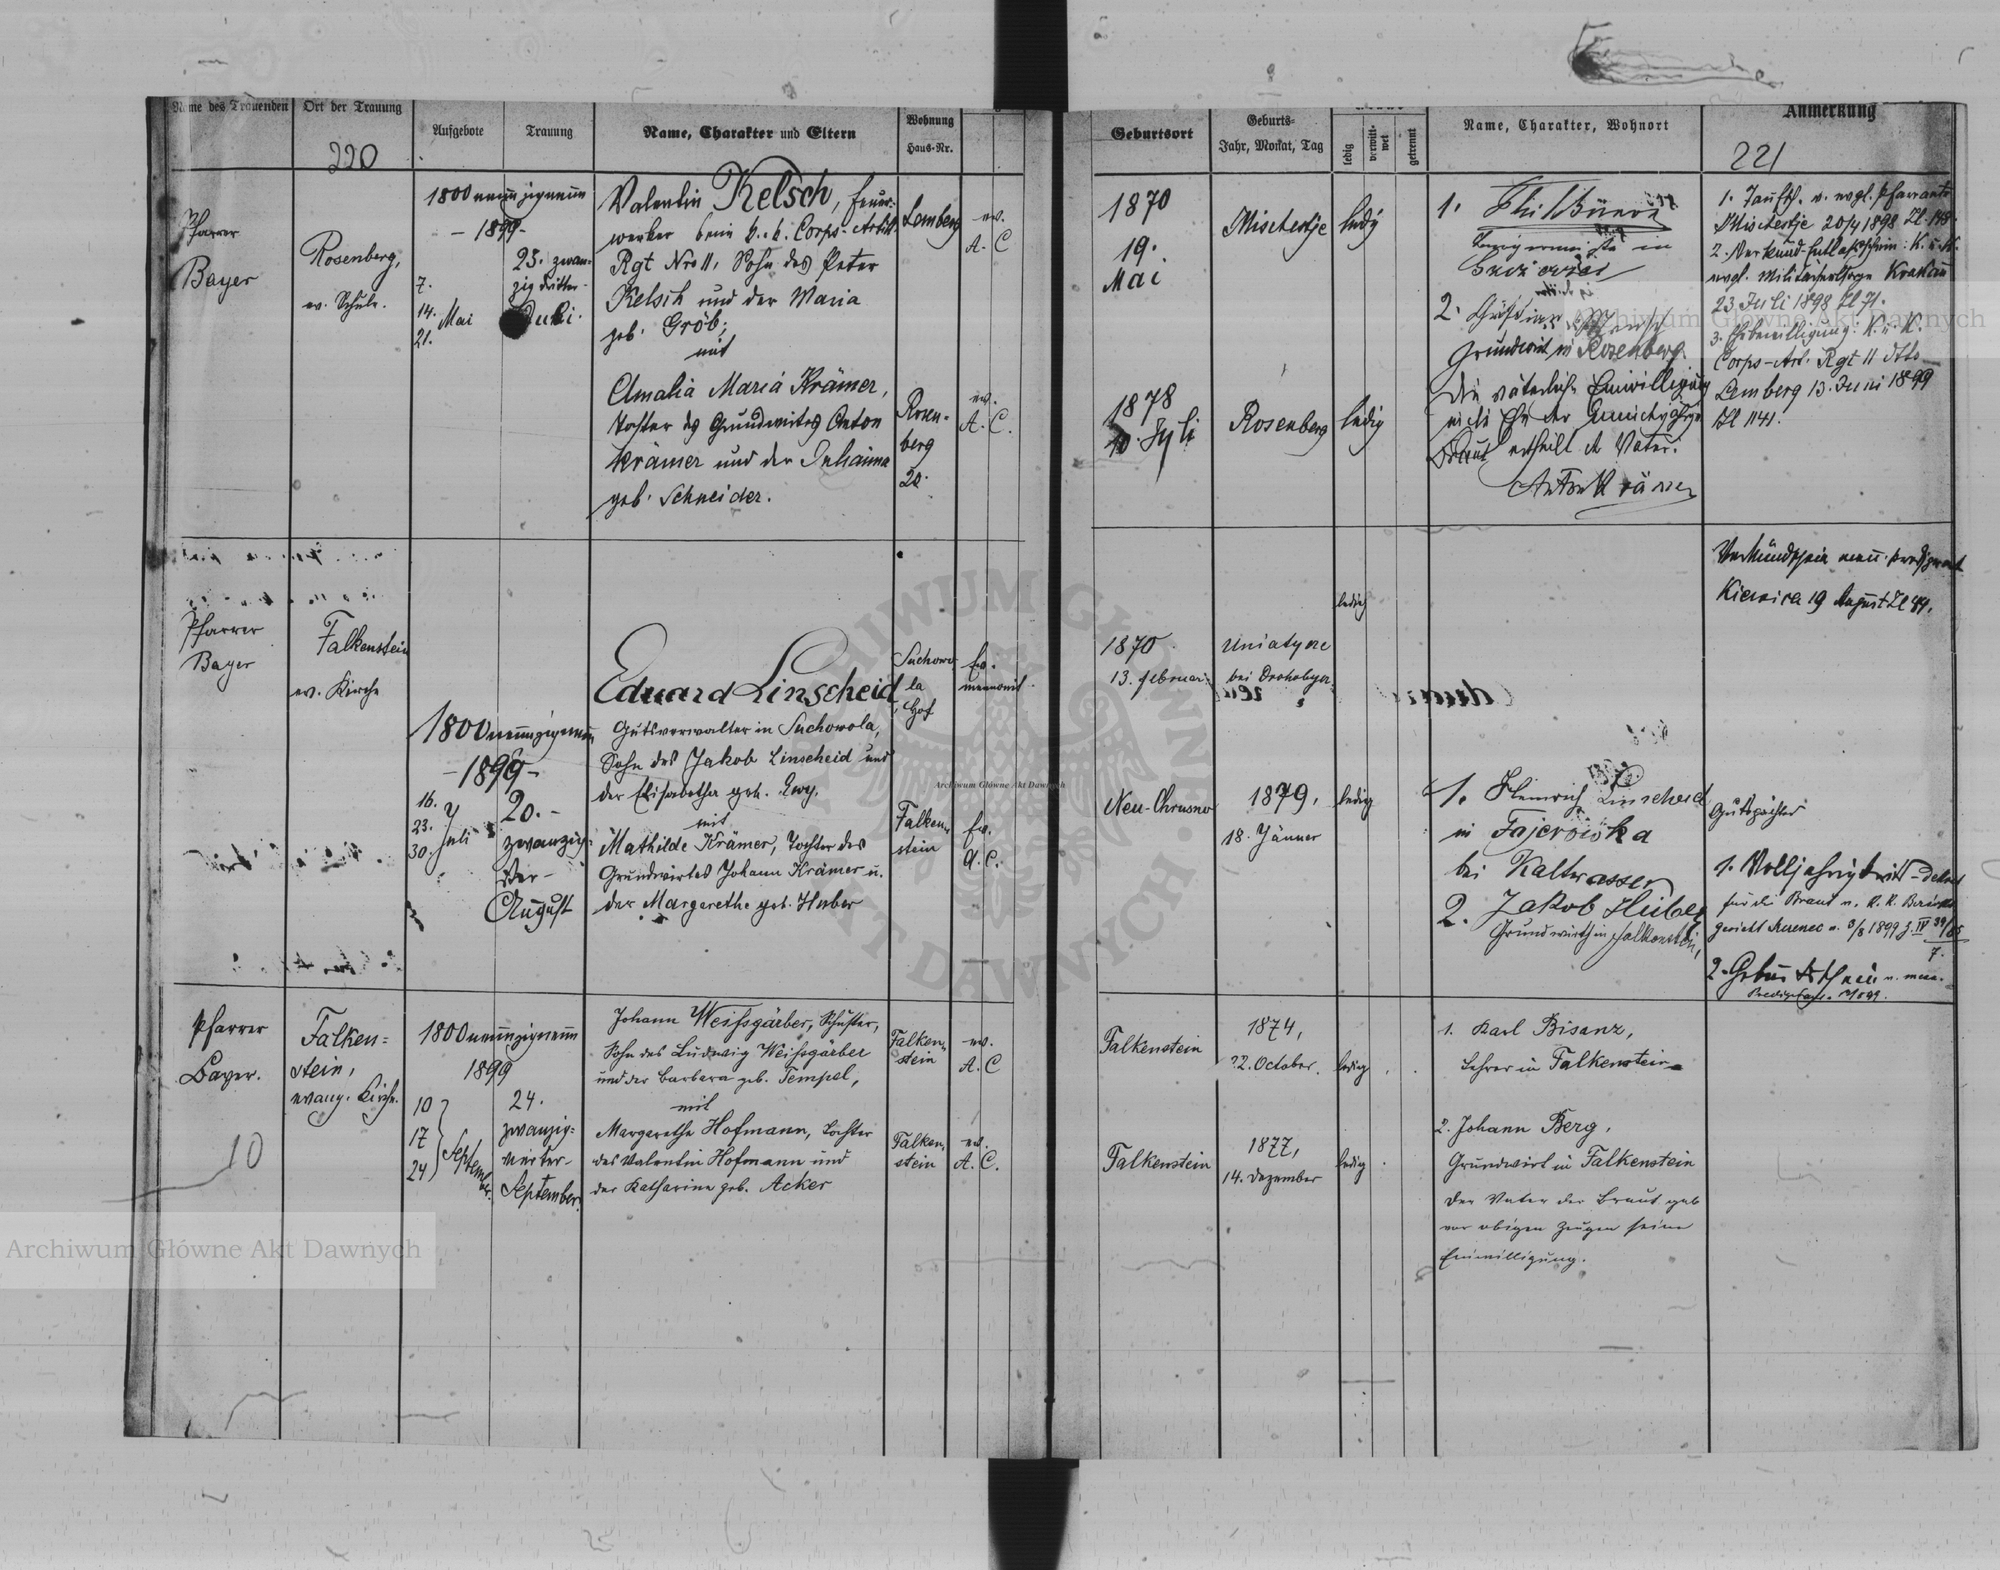 Name des Trauenden
Ort der Trauung
Aufgebote
Trauung
Name, Charakter und Eltern
Wohnung
Haus-Nr.
220
Pfarrer
Bayer
Rosenberg,
ev. Schule.
1800 neunzigneun
- 1899 -
7.
14. Mai
21.
23. zwan-
zig dritter
Juli.
Valentin Kelsch, Feuer-
werker beim k. k. Corps-Artill.
Rgt Nro 11, Sohn des Peter
Kelsch und der Maria
geb. Gröb;
mit
Amalia Maria Krämer,
Tochter des Grundwirtes Anton
Krämer und der Johanna
geb. Schneider.
Lemberg
ev.
A. C
Rosen-
berg
20.
ev.
A. C.
Pfarrer
Bayer
Falkenstein
ev. Kirche
1800 neunzigneun
- 1899 -
16.
23. Juli
30.
20. -
zwanzig-
ster -
August
Eduard Linscheid
Gutsverwalter in Suchowola,
Sohn des Jakob Linscheid und
der Elisabetha geb.
mit
Mathilde Krämer, Tochter des
Grundwirtes Johann Krämer u.
der Margarethe geb. Huber
Suchowo-
la
Hof
Ev.
mennonit.
Falken-
stein
Ev.
A. C.
Pfarrer
Bayer.
Falken=
stein,
evang. Kirche.
10
1800 neunzigneun
1899
10
17
24
September.
24.
zwanzig=
vierter-
September.
Johann Weifsgärber, Schuster,
Sohn des Ludwig Weifsgärber
und der Barbara geb. Tempel,
mit
Margarethe Hofmann, Tochter
des Valentin Hofmann und
der Katharina geb. Acker
Falken-
stein
ev.
A. C
Falken-
stein
ev.
A. C.
Geburtsort
Geburts-
Jahr, Monat, Tag
ledig
verwit-
wet
getrennt
Name, Charakter, Wohnort
Anmerkung
221
1870
19.
Mai
Mischestje
ledig
1878
Rosenberg
ledig
1.
2.
Grundwirt in Rosenberg.
Die väterliche Einwilligung
Braut ertheilt der Vater.
Anton Krämer
1. Taufsch. v. evgl. Pfarramte
Mischestje 20/4 1898 Zl.
2. Verkünd-Entlaßschein: K. u. K.
evgl. Militärseelsorge Krakau
23 Juli 1898 Zl 71.
3. Ehebewilligung: K. u. K.
Corps-Art. Rgt 11 dtto
Lemberg 13. Juni 1899
Zl 1141.
Verkündschein menn. Predigeramt
Kiernica 19 August Zl 44.
1870
13. Februar
Uniatycze
bei Drohobycz
ledig
Neu-Chrusno
1879,
18. Jänner
ledig
1. Heinrich Linscheid
in
bei Kaltwasser
2. Jakob Huber
Grundwirth in Falkenstein,
Gutspächter
1. Volljährigkeits-Dekret
für die Braut v. K. K. Bezirks
2. Geburtsschein v. menn.
Falkenstein
1874,
22. October.
ledig
Falkenstein
1877,
14. Dezember
ledig
1. Karl Bisanz,
Lehrer in Falkenstein
2. Johann Berg,
Grundwirt in Falkenstein
Der Vater der Braut gab
vor obigen Zeugen seine
Einwilligung.
Archiwum Główne Akt Dawnych
Archiwum Główne Akt Dawnych
Archiwum Główne Akt Dawnych
ARCHIWUM GŁÓWNE AKT DAWNYCH